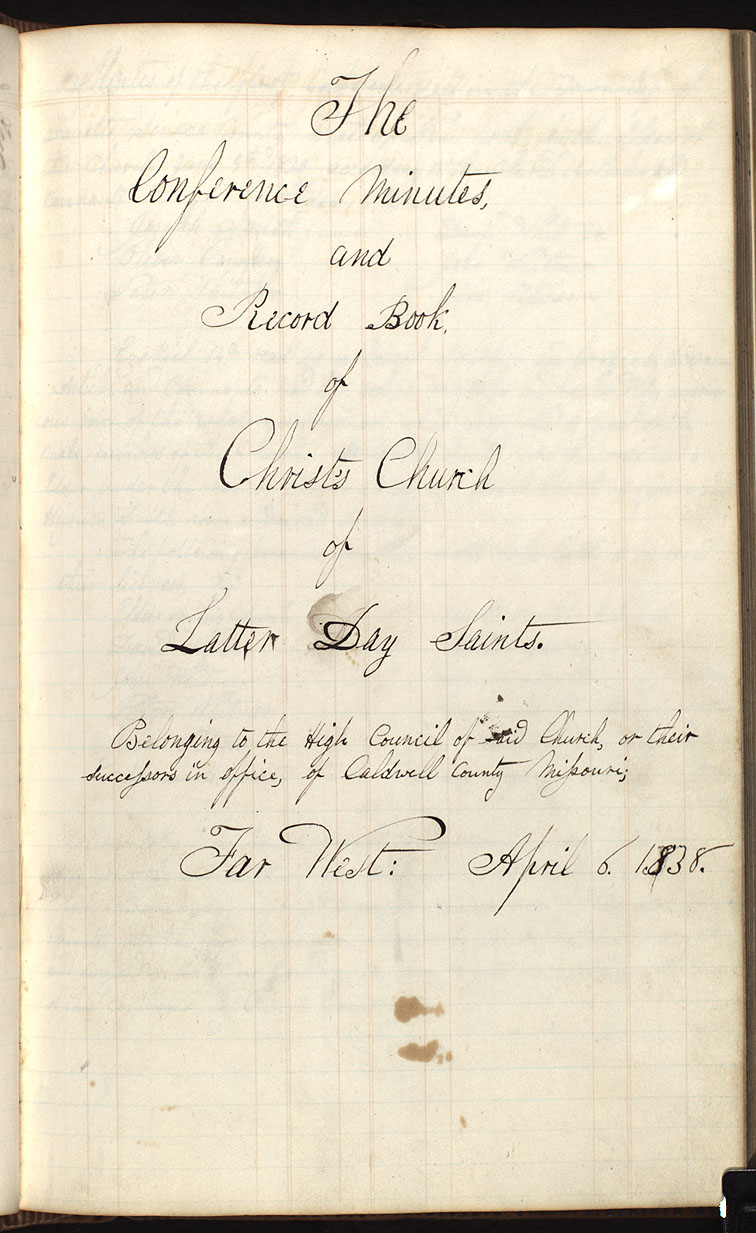 The
Conference Minutes,
and
Record Book,
of
Christ's Church
of
Latter Day Saints.
Belonging to, the High Council of said Church, or their
successors in office, of Caldwell County Missouri;
Far West: April 6. 1838.